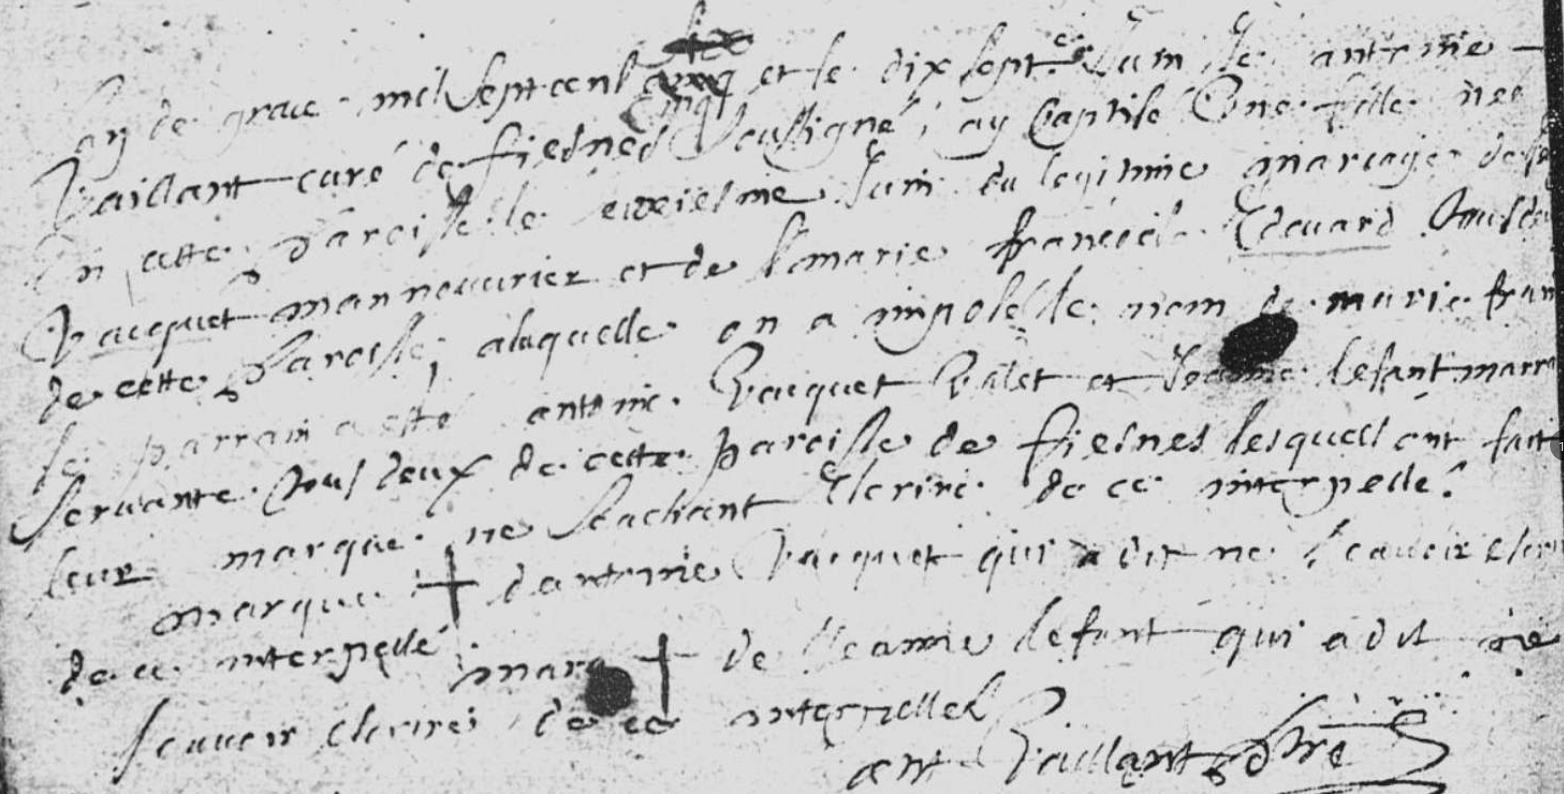 L'an de grace mil sept cent cinq et le dix sept Juin Je antoine
Vaillant curé de fiesnes soussigné, ay baptisé une fille née
En cette paroisse le Juin du legitime mariage de
Vacquet mannouvrier et de marie francoise Edouard tous deux
de cette paroisse, a laquelle on a imposé le nom de marie fran
le parrain a esté antoine Vacquet Valet et Jeanne lefant marra
servante tous deux de cette paroisse de fiesnes lesquels ont fait
leur marque ne scachant escrire de ce interpellé
marque + d'antoine Vacquet qui a dit ne scavoir escri
de ce interpellé marq + de Jeanne lefant qui a dit ne
scavoir escrire de ce interpellé
ant Vaillant pbre